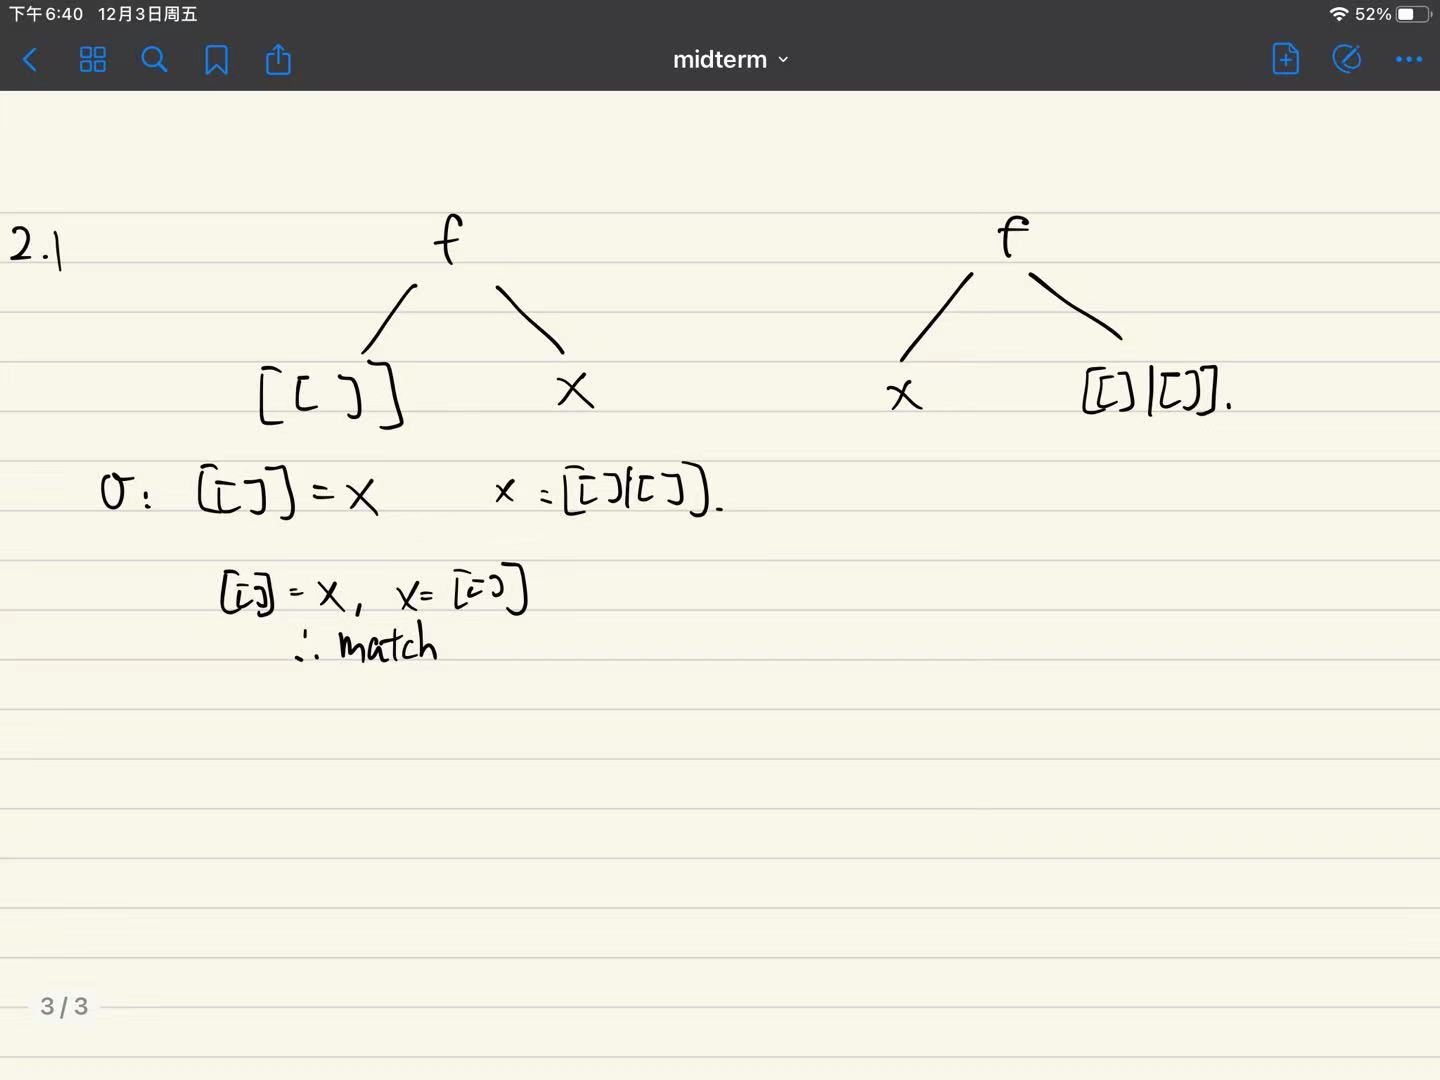 下午6:40 12月3日周五 52%
midterm
2.1 f f
[[ ]] X x [[]|[]].
σ: [[]] = X x = [[]|[]].
[[]] = X, x = [[]]
∴ match
3 / 3